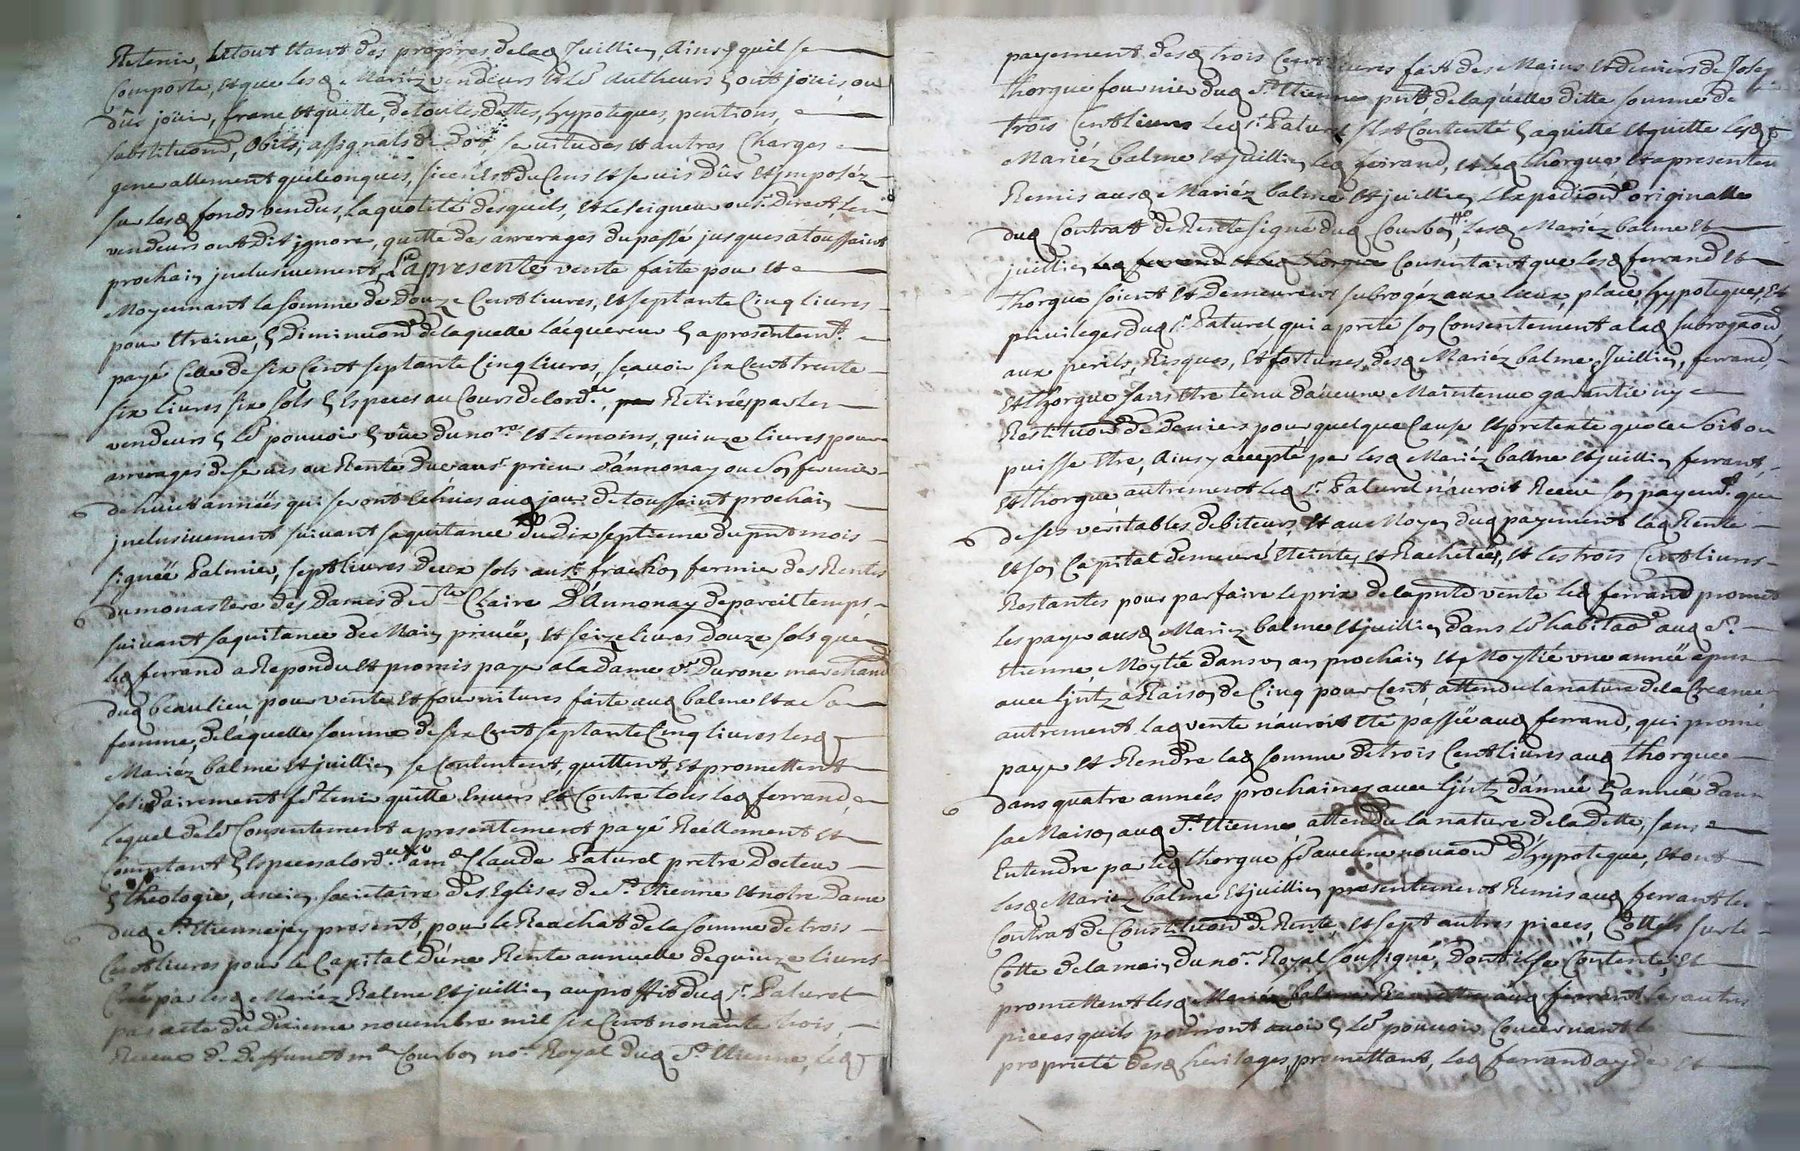 Retenir, Le tout étant des propres de lad Juillien, Ainsy quil se
Comporte, et que lesd Mariéz vendeurs et Lrs autheurs en ont joüis ou
dûs joüir, franc et quitte de toutes dettes, hypoteques, pentions,
substituons, Obits, assignals de Dot servitudes et autres Charges
generallement quelconques, si ce n'est du Cens et servis dûs et jmposéz
sur lesd fonds vendus, La quotité desquels, et Le seigneur ou sr Direct, Les
vendeurs ont dit ignorer, quitte des arrerages du passé jusques a toussaint
prochain jnclusivement, La presente vente faite pour et
Moyennant la somme de Douze Cent livres, et septante Cinq livres
pour Etreine, en diminuon de laquelle Lacquereur en a presentemt
payé Celle de six Cent septante Cinq livres, sçavoir six Cent trente
six livres six sols en Especes au Cours de Lordce, Retirées par les
vendeurs en Lr pouvoir en vûe du nore et temoins, quinze livres pour
arrerages de servis ou Rente due au sr prieur D'annonay ou son fermier
de huit années qui seront Echües aud jour de toussaint prochain
jnclusivement suivant sa quitance du Dix septieme du pnt mois
signée Palmier, sept livres deux sols au sr frachon fermier des Rentes
du monastere des Dames de Ste Claire D'Annonay de pareil temps
suivant sa quitance de Main privée, et seize livres douze sols que
led ferrand a Repondu et promis payer a la Dame ve Durone marchand
dud beaulieu pour vente et fournitures faite aud balme et a sa
femme, de laquelle somme de six Cent septante Cinq livres lesd
Mariéz balme et juillien se Contentent, quittent, et promettent
solidairement fe tenir quitte Envers et Contre tous led ferrand,
lequel de Lr Consentement a presentement payé Réellement et
Comptant en Especes a lordce a me Claude Paturel pretre Docteur
en theologie, ancien societaire des Eglises de St Etienne et notre Dame
dud St Etienne jcy present, pour le Reachat de la somme de trois
Cent livres pour le Capital D'une Rente annuelle de quinze livres
Créé par lesd Mariéz Balme et juillien au proffit dud sr Paturel
par acte du Dixieme novembre mil six Cent nonante trois,
Receue p deffunct me Courbon nore Royal dud St Etienne, led
payement desd trois Cent livres fait des Mains et deniers de Jose
thorgue fournier dud St Etienne pnt de laquelle ditte somme de
trois Cent livres led sr Paturel s'est Contenté en a quitté et quitte lesd
Mariéz balme et juillien led ferrand, et led thorgue, et a presentem
Remis ausd Mariéz balme et juillien L'Expedion originalle
dud Contrat de Rente signé dud Courbon, lesd Mariéz balme et
juillien led ferrand et led thorgue Consentant que lesd ferrand et
thorgue soient et demeurent subrogéz aux lieux, place, hypoteques, et
privileges dud sr Paturel qui a prêté son Consentement a lad subrogaon
aux perils, Risques, et fortunes, desd Mariéz balme, Juillien, ferrand,
et thorgue sans Etre tenu d'aucune Maintenue garantie ny
Restituon de deniers pour quelque Cause et pretexte que ce soit ou
puisse Etre, Ainsy accepté par lesd Mariéz balme et juillien ferrant
et thorgue autrement led sr Paturel n'auroit Receu son payemt que
de ses véritables debiteurs, et au Moyen dud payement lad Rente
et son Capital demeure Eteinte, et Rachetée, et les trois Cent livres
Restantes pour parfaire le prix de la pnte vente led ferrand promet
les payer ausd Mariéz balme et juillien dans Lr habitaon aud St
Etienne, Moytié dans un an prochain et Moytié une année apres
avec Ijntz a Raison de Cinq pour Cent attendu la nature de la Creance
autrement lad vente n'auroit Eté passée aud ferrand, qui prome
payer et Rendre lad somme de trois Cent livres aud thorgue
dans quatre années prochaines avec Ijntz d'année en année dans
sa Maison aud St Etienne attendu la nature de la dette, sans
Entendre par led thorgue fe aucune novaon D'hypoteque, et ont
lesd Mariéz balme et juillien presentement Remis aud ferrant le
Contrat de Constituon de Rente et sept autres pieces, Cottés sur le
Cotte de la main du nore Royal soussigné, dont il se Contente, et
promettent lesd Mariéz balme Remettre aud ferrant les autres
pieces quils pourront avoir en Lr pouvoir Concernant la
proprieté desd heritages, promettant, led ferrand ayder et